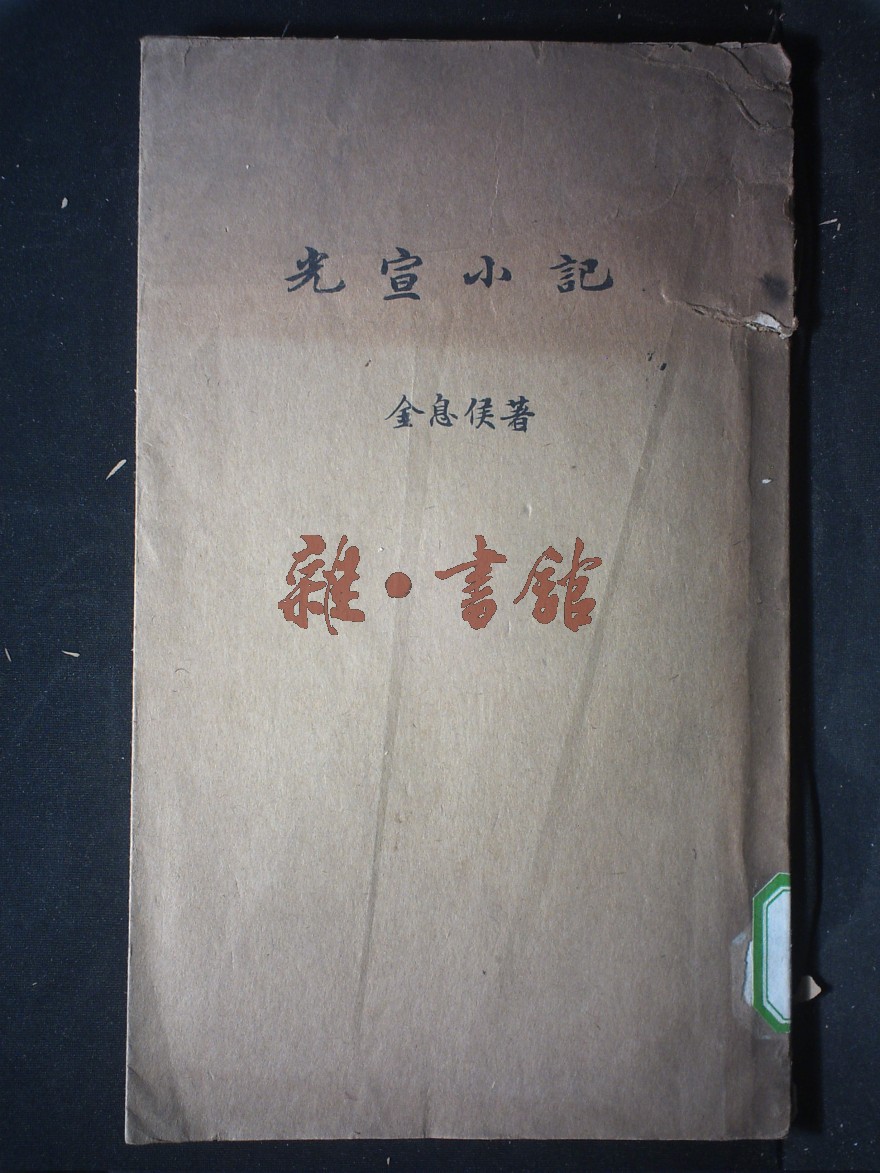 光宣小記
金息侯著
雜·書館